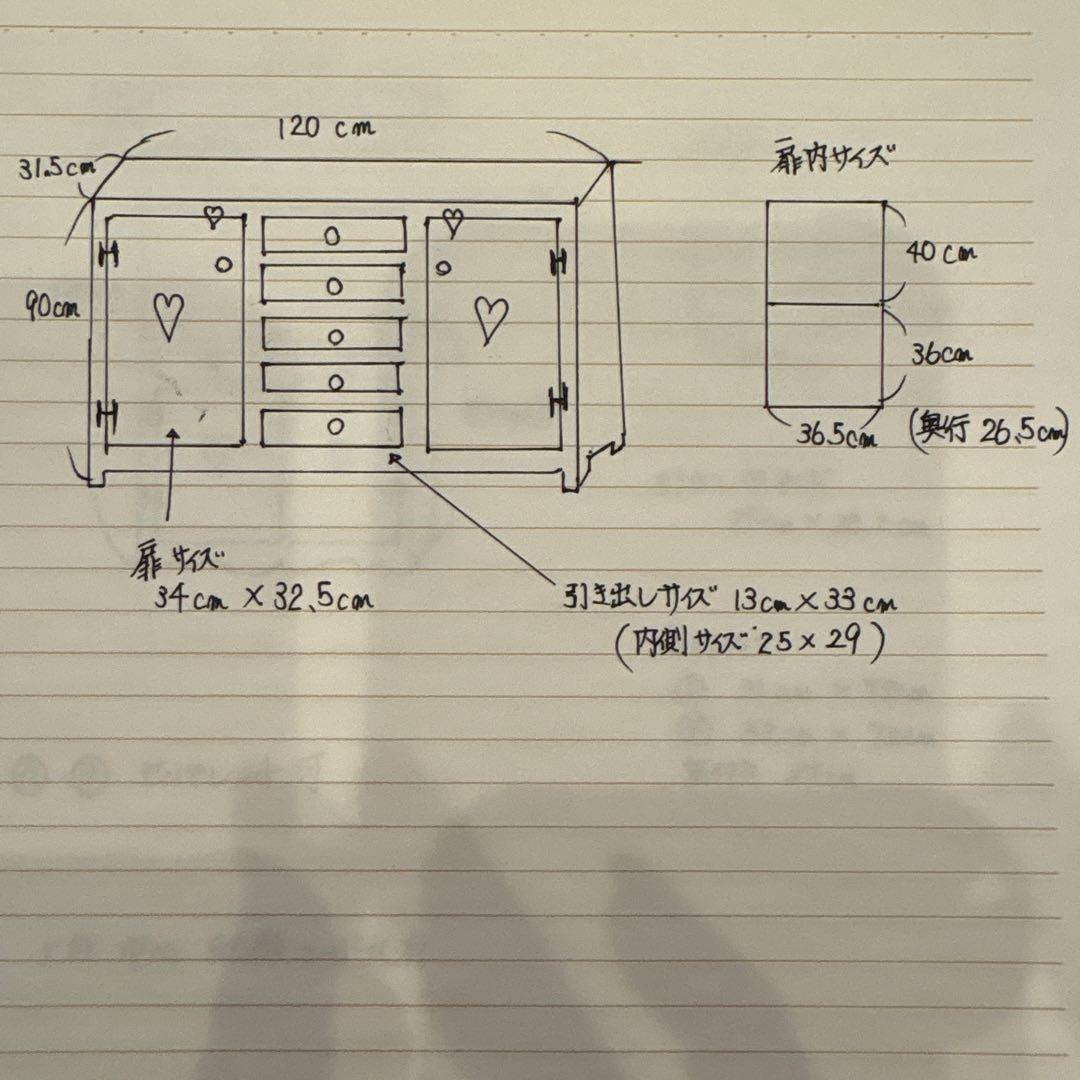 120 cm
31.5cm
90cm
扉内サイズ
40 cm
36cm
36.5cm
(奥行 26.5cm)
扉サイズ
34cm × 32.5cm
引き出しサイズ 13cm × 33cm
(内側サイズ 25 × 29)